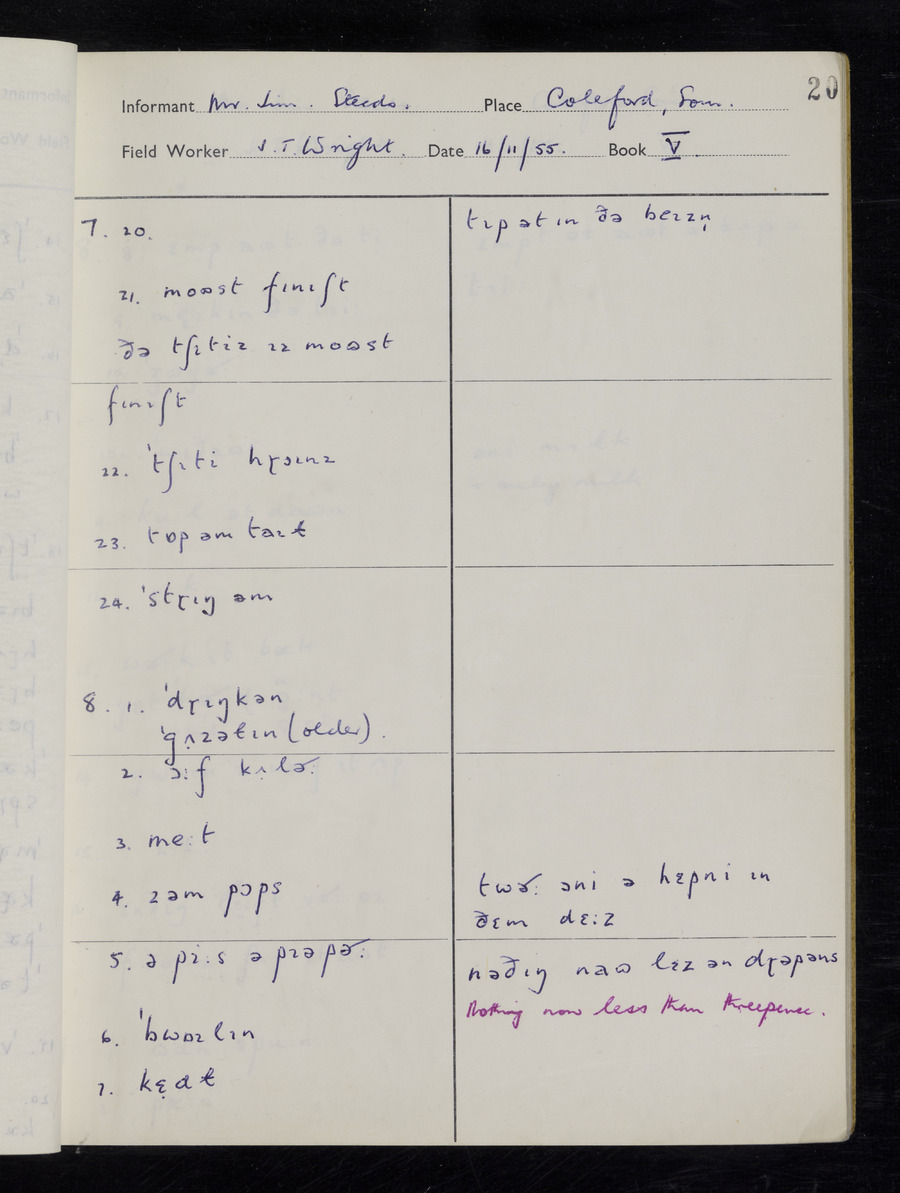 20
Informant Mr. Jim. Steeds. Place Coleford, Som.
Field Worker J.T. Wright. Date 16/11/55. Book V
7. 20.
tɪp ət ɪn ðə beɪzn̩
21. moʊst fɪnɪʃt
ðə tʃɪtiz ɪz moʊst
fɪnɪʃt
22. ˈtʃɪti
23. tɒp əm
24. ˈstɽɪŋ əm
8. 1. ˈdɽɪŋkən
ˈgʌzətɪn (older).
2. ɔ:f kʌlɚ:
3. me:t
4. zəm pɔps
twɚ: əni ə hɛpni ɪn
ðɛm dɛ:z
5. ə pi:s ə pɪəpɚ:
nəðɪŋ naʊ lɛz ən dɽəpəns
Nothing now less than threepence.
6. ˈbwɒɪlɪn
7. kɛdɫ